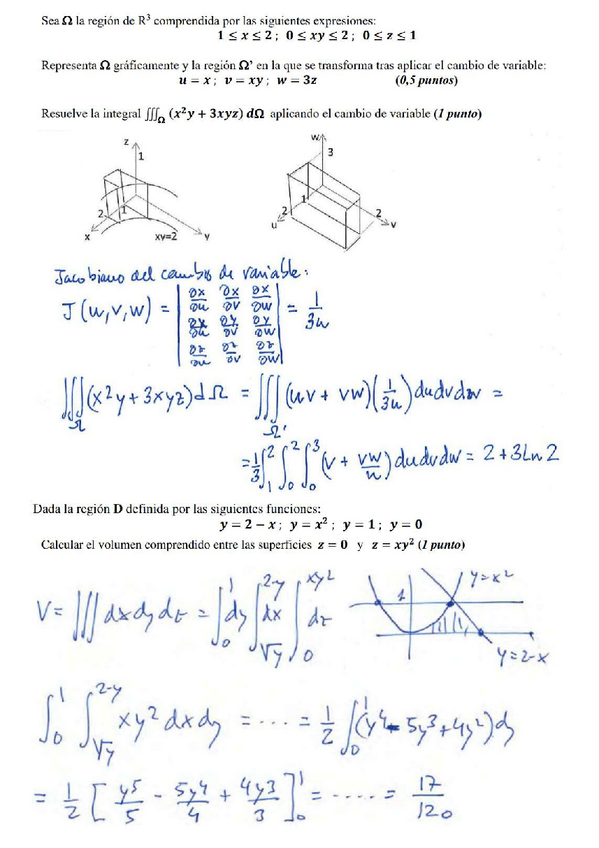 Sea Ω la región de R³ comprendida por las siguientes expresiones:
1 ≤ x ≤ 2 ; 0 ≤ xy ≤ 2 ; 0 ≤ z ≤ 1
Representa Ω gráficamente y la región Ω' en la que se transforma tras aplicar el cambio de variable:
u = x ; v = xy ; w = 3z (0,5 puntos)
Resuelve la integral ∭_Ω (x²y + 3xyz) dΩ aplicando el cambio de variable (1 punto)
z 1 2 1 x xy=2 y
w 3 1 2 u 2 v
Jacobiano del cambio de variable:
J(u,v,w) = | ∂x/∂u ∂x/∂v ∂x/∂w ; ∂y/∂u ∂y/∂v ∂y/∂w ; ∂z/∂u ∂z/∂v ∂z/∂w | = 1/3u
∭_Ω (x²y + 3xyz) dΩ = ∭_Ω' (uv + vw)(1/3u) du dv dw =
= 1/3 ∫₁² ∫₀² ∫₀³ (v + vw/u) du dv dw = 2 + 3 Ln 2
Dada la región D definida por las siguientes funciones:
y = 2 − x ; y = x² ; y = 1 ; y = 0
Calcular el volumen comprendido entre las superficies z = 0 y z = xy² (1 punto)
V = ∭ dx dy dz = ∫₀¹ dy ∫_√y^(2-y) dx ∫₀^(xy²) dz
1 y=x² y=2-x
∫₀¹ ∫_√y^(2-y) xy² dx dy = ---- = 1/2 ∫₀¹ (y⁴ - 5y³ + 4y²) dy
= 1/2 [ y⁵/5 - 5y⁴/4 + 4y³/3 ]₀¹ = ----- = 17/120